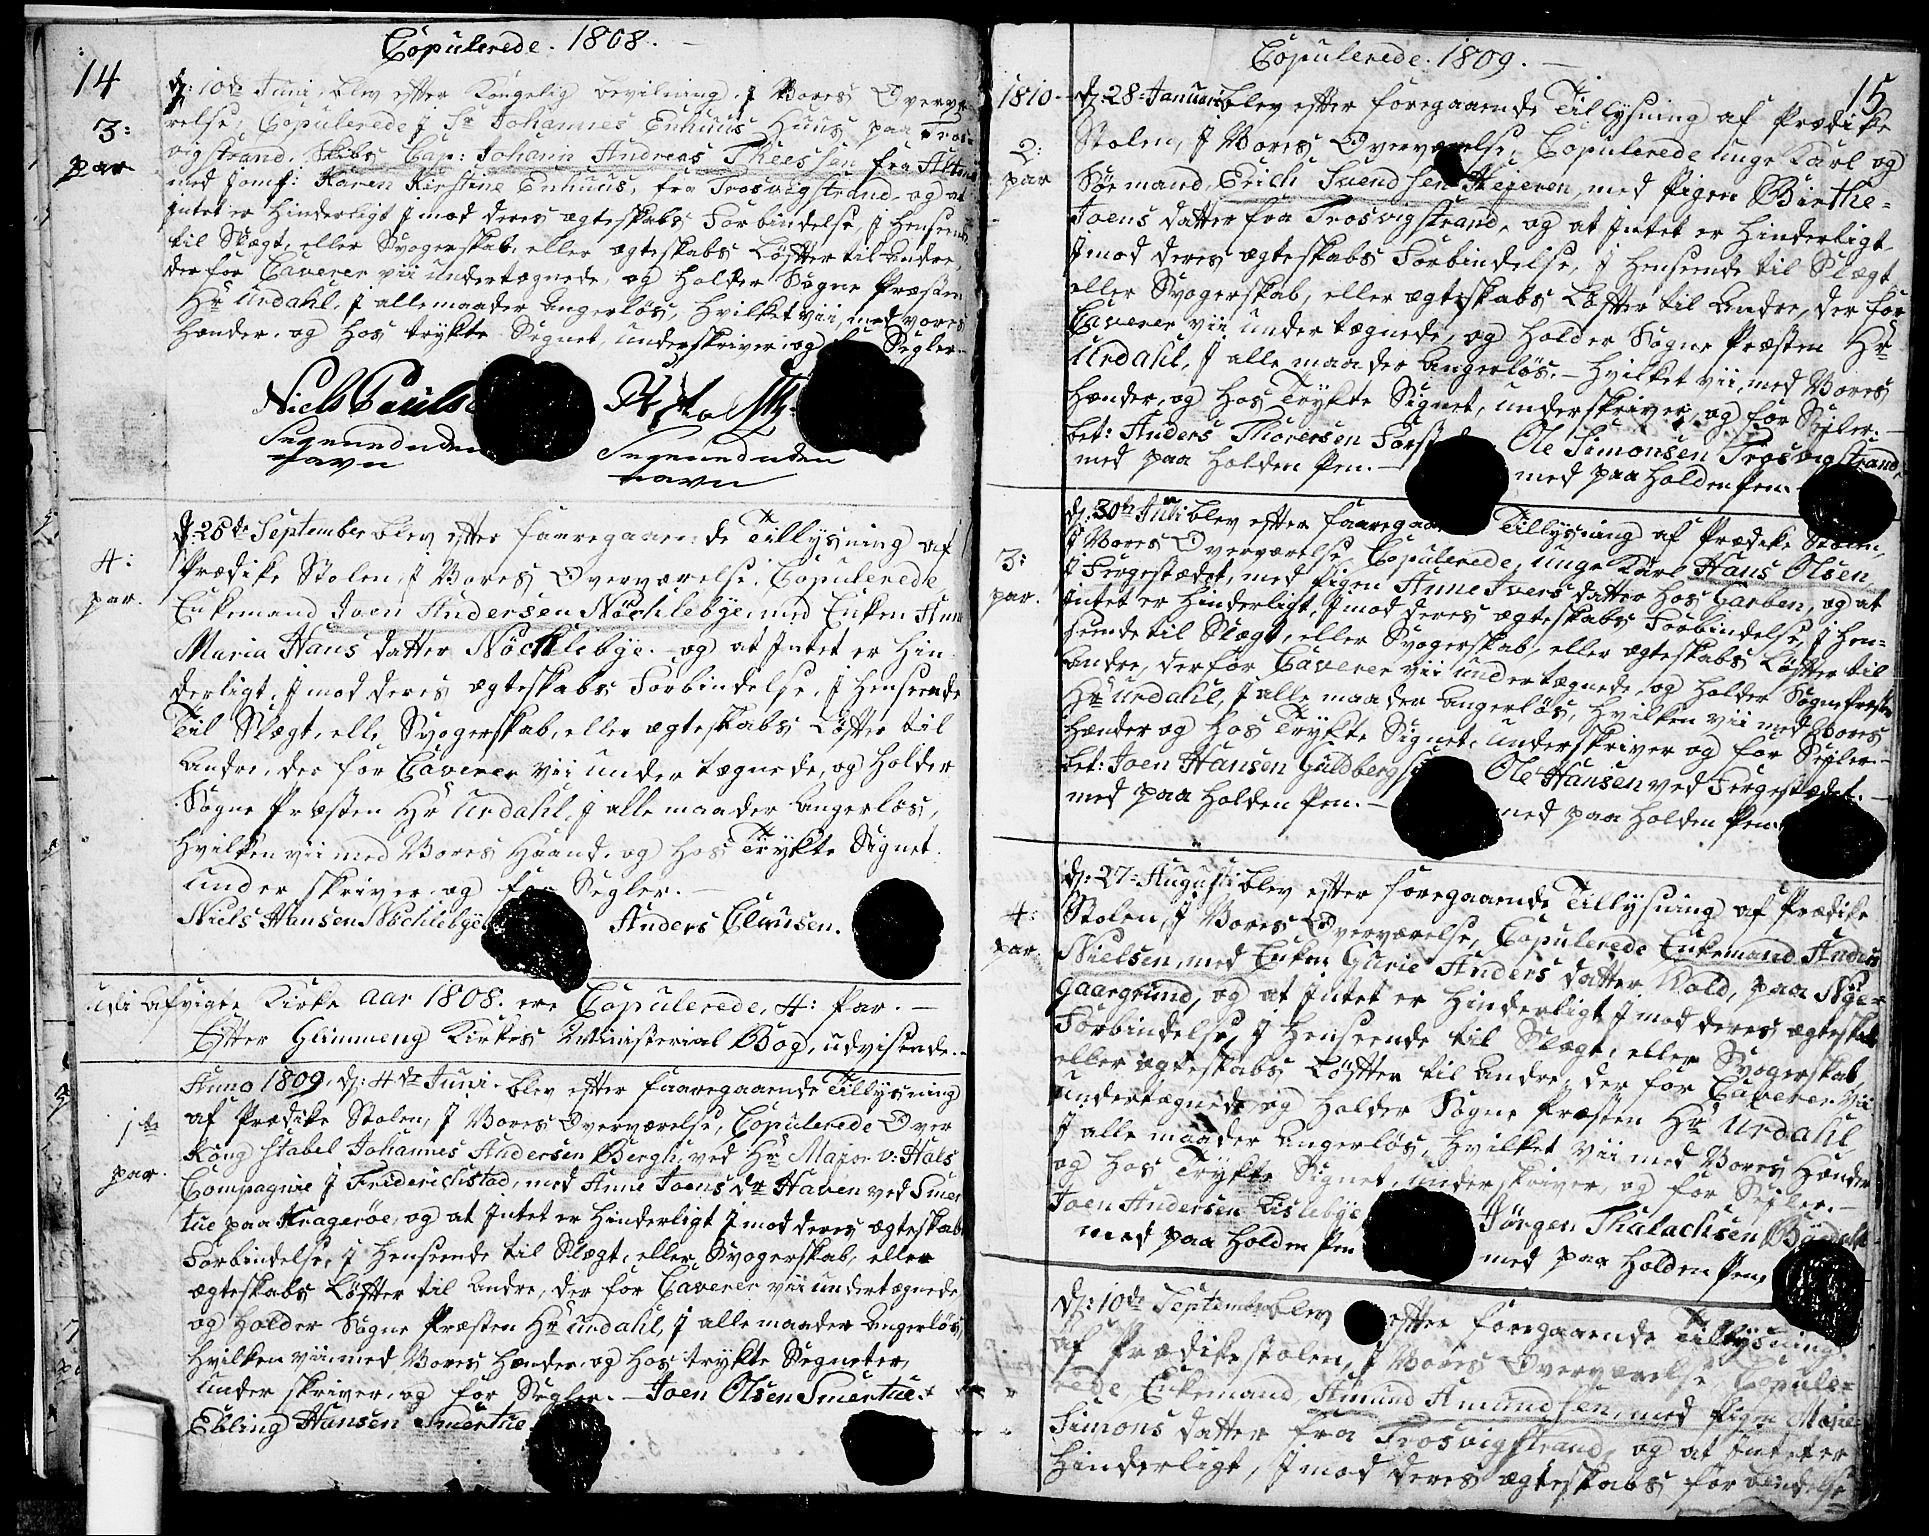 Copulerede. 1808.
14
3:
par
dj: 10de Juni, blev efter Kongelig bevilning, J Vores Overvæ-
relse, Copulerede J Sr Johannes Enhuus Huus, paa Tros-
vigstrand. Skibs Cap: Johann Andreas Theessen fra
med Jomf: Karen Kirstine Enhuus, fra Trosvigstrand og at
Jntet er Hinderligt J mod deres ægteskabs Forbindelse, J Henseende
til Slægt, eller Svogerskab, eller ægteskabs Løfter til Andre,
der for Caverer vii undertægnede, og holder Sogne Præsten
Hr Urdahl, J alle maader Angerløs, Hvilket vii, med vores
Hænder, og hos trykte Segnet, underskriver og Segler
Niels Pouls
Segnned uden Segnned uden
navn navn
4:
par.
d: 25de September blev efter faaregaaende Tillysning af
Prædike Stolen, J Vores Overværelse, Copulerede
Enkemand Joen Andersen Nöchlebye, med Enken Anne
Maria Hans datter Nöchlebye. og at Jntet er Hin-
derligt, J mod deres ægteskabs Forbindelse, J Henseende
Til Slægt, elle Svogerskab, eller ægteskabs Løfter til
Andre, der for Caverer vii under tægnede, og holder
Sogne Præsten Hr Urdahl, J alle maader Angerløs,
Hvilken vii med Vores Haand, og hos Trykte Signet
under skriver og for Segler.
Niels Hansen Nöchlebye Anders Clausen.
Udi afvigte Kirke Aar 1808. ere Copulerede, 4: Par.
Efter Glimmeng Kirkes Ministerial Bog, udvisende.
1te
par.
Anno 1809, dj: 4de Juni. blev efter faaregaaende Tillysning
af Prædike Stolen, J Vores Overværelse, Copulerede Over
Kong stabel Johannes Andersen Bergh, ved Hr Major v: Hals
Compagnie J Friderichstad, med Anne Joens dr Haven ved Smer
tue paa Kragerøe, og at Jntet er Hinderligt J mod deres ægteskabs
Forbindelse, J Henseende til Slægt, eller Svogerskab, eller
ægteskabs Løfter til Andre, der for Caverer vii undertægnede
og holder Sogne Præsten Hr Urdahl, J alle maader Angerløs
Hvilken vii, med Vores Hænder, og hos trykte Segneter,
under skriver, og for Segler. — Joen Olsen Smertue
Ebling Hansen Smertue
Copulerede. 1809.
15
1810
2:
par
dj: 28 Januari blev efter foregaaende Tillysning af Prædike
Stolen, J Vores Overværelse, Copulerede unge Karl og
Söemand, Erich Suendsen Hejeren, med Pigen Birthe
Joens datter fra Trosvigstrand, og at Jntet er Hinderligt
J mod deres ægteskabs Forbindelse, J Henseende til Slægt
eller Svogerskab, eller ægteskabs Løfter til Andre, der for
Caverer vii under tægnede, og holder Sogne Præsten Hr
Urdahl, J alle maader Angerløs. — Hvilket vii, med Vores
Hænder, og hos Trykte Signet, underskriver, og for Segler.
bet: Anders Thoresen Ole Simonsen Trosvigstrand
med paa holden Pen. — med paa holden Pen.
3:
par.
dj: 30te Juli blev efter faaregaa Tillysning af Prædike Stolen,
J Vores Overværelse, Copulerede, unge Karl Hans Olsen
J Fergestædet, med Pigen Anne Jvers datter hos Garben, og at
Jntet er Hinderligt, J mod deres ægteskabs Forbindelse, J Hen-
seende til Slægt, eller Svogerskab, eller ægteskabs Løfter til
Andre, der for Caverer vii undertægnede, og holder Sogne Præsten
Hr Urdahl, J alle maader Angerløs, Hvilken vii med Vores
Hænder og hos Trykte Signet, underskriver og for Segler.
bet: Joen Hansen Guldberg Ole Hansen ved Fergestædet.
med paa holden Pen. — med paa holden Pen.
4:
par.
dj: 27 Augusti blev efter foregaaende Tillysning af Prædike
Stolen, J Vores Overværelse, Copulerede Enkemand Anders
Nielsen, med Enken Gurie Anders datter Wold, paa Nye
gaargrund, og at Jntet er Hinderligt J mod deres ægteskabs
Forbindelse, J Henseende til Slægt, eller Svogerskab,
eller ægteskabs Løfter til Andre, der for Caverer vii
undertægnede, og holder Sogne Præsten Hr Urdahl
J alle maader Angerløs, Hvilket vii med Vores Hænder
og hos Trykte Signet, underskriver, og for Segler.
Joen Andersen Lislebye Jörgen Thalachsen
med paa holden Pen med paa holden Pen
dj: 10de September blev efter foregaaende Tillysning
af Prædikestolen, J Vores Overværelse, Copule-
rede Enkemand, Amund Amundsen, med Pigen Marie
Simons datter fra Trosvigstrand, og at Jntet er
Hinderligt, J mod deres ægteskabs forbindelse